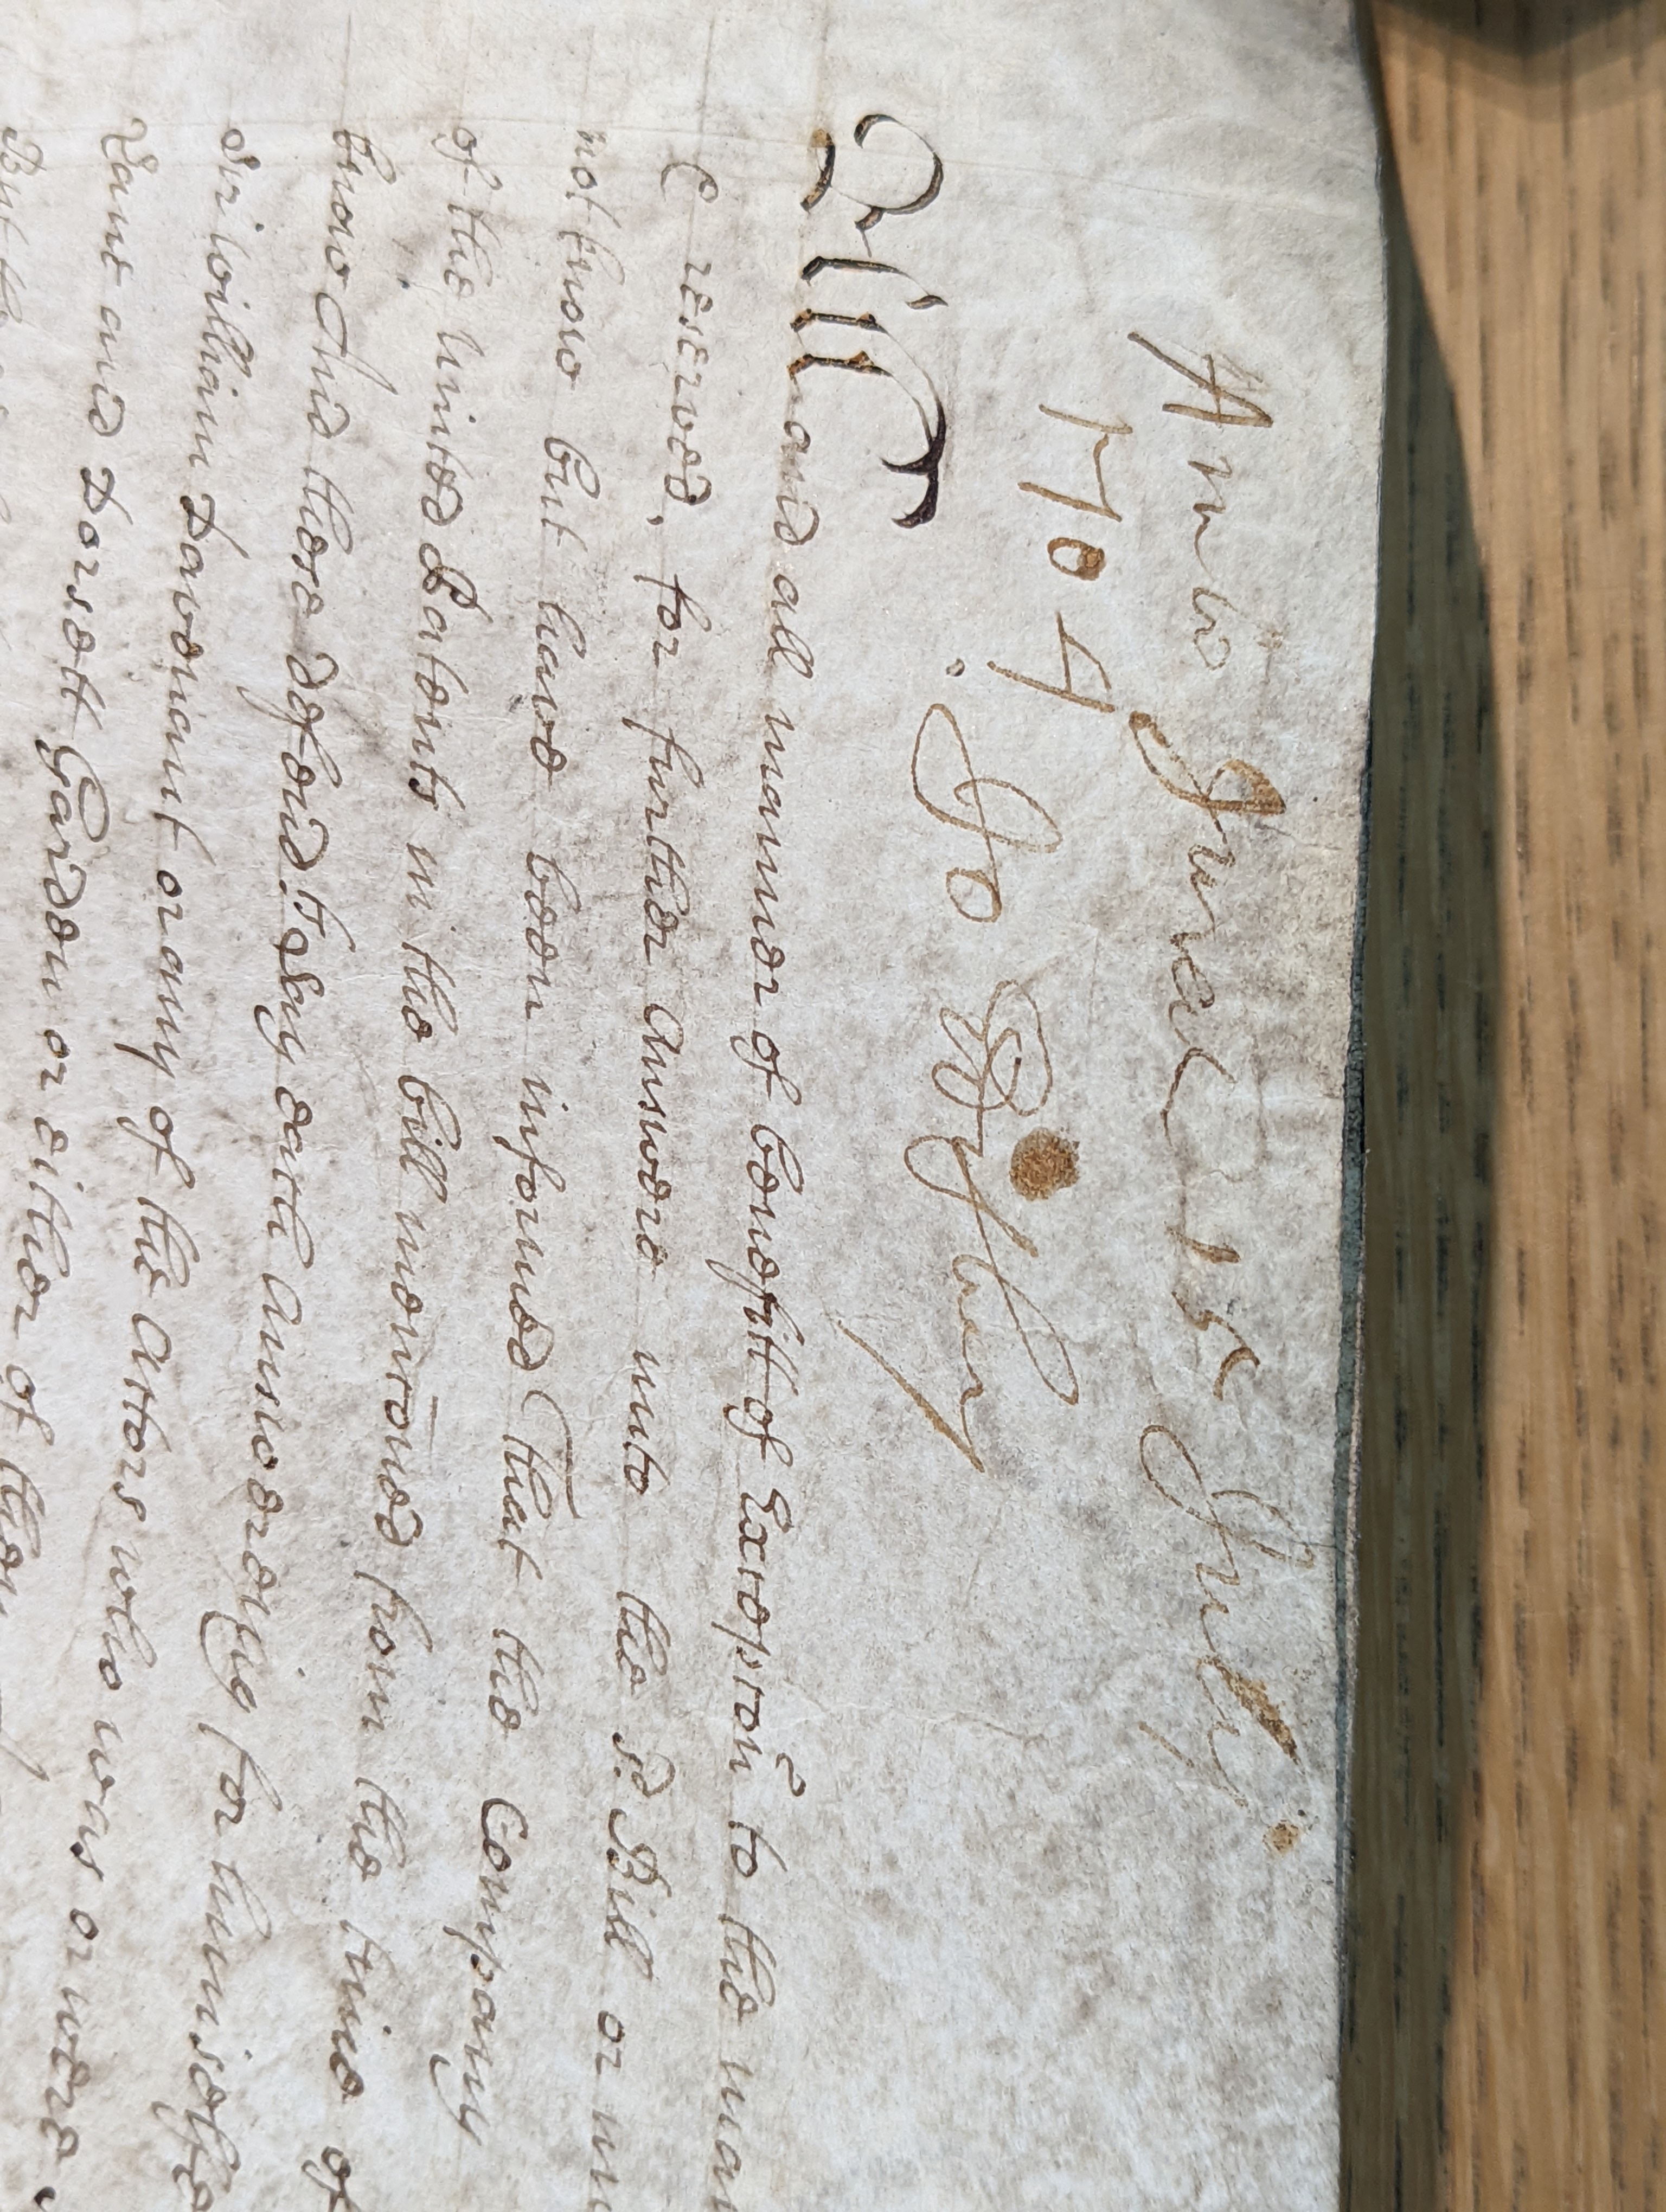 Ambo Jurat 15 July
1704
Jo Edisbury
All and all manner of benefitt of Exceptioñ to the man
reserved, for further Answere unto the sd Bill or
not know but have been informed That the Company
of the United Patents in the bill menc̄oned from the time of
know And these defend.ts Say each Answereing for himselfe
Sir William Davenant or any of the Actors who was or were
Lane and Dorsett Garden or either of them